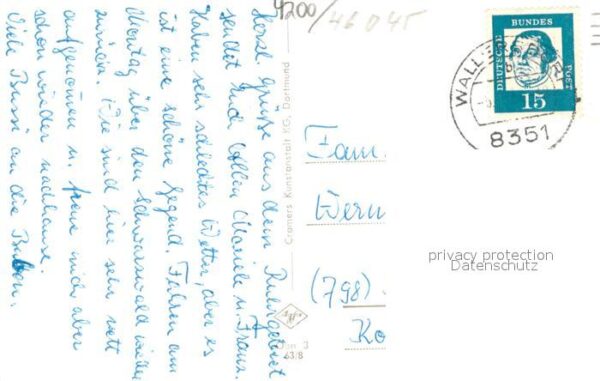 4200/46045
Herzl. Grüße aus dem Ruhrgebiet
sendet Euch Allen Mariele u. Franz.
Haben sehr schlechtes Wetter, aber es
ist eine schöne Gegend. Fahren am
Montag über den Schwarzwald wieder
zurück. Wir sind hier sehr nett
aufgenommen u. freue mich aber
schon wieder nachhause.
Viele Bussi an die Buben.
Cramers Kunstanstalt KG, Dortmund
Agfa
3
63/8
Fam.
Wern
(798)
Ko
DEUTSCHE
BUNDES
POST
15
WALLE
8351
privacy protection
Datenschutz